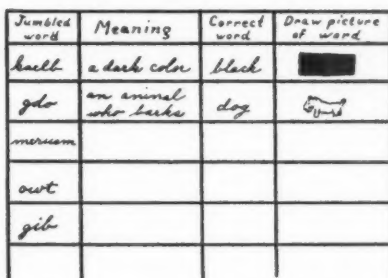 Jumbled word Meaning Correct word Draw picture of word
kaclb a dark color black
gdo an animal who barks dog
owt
gib